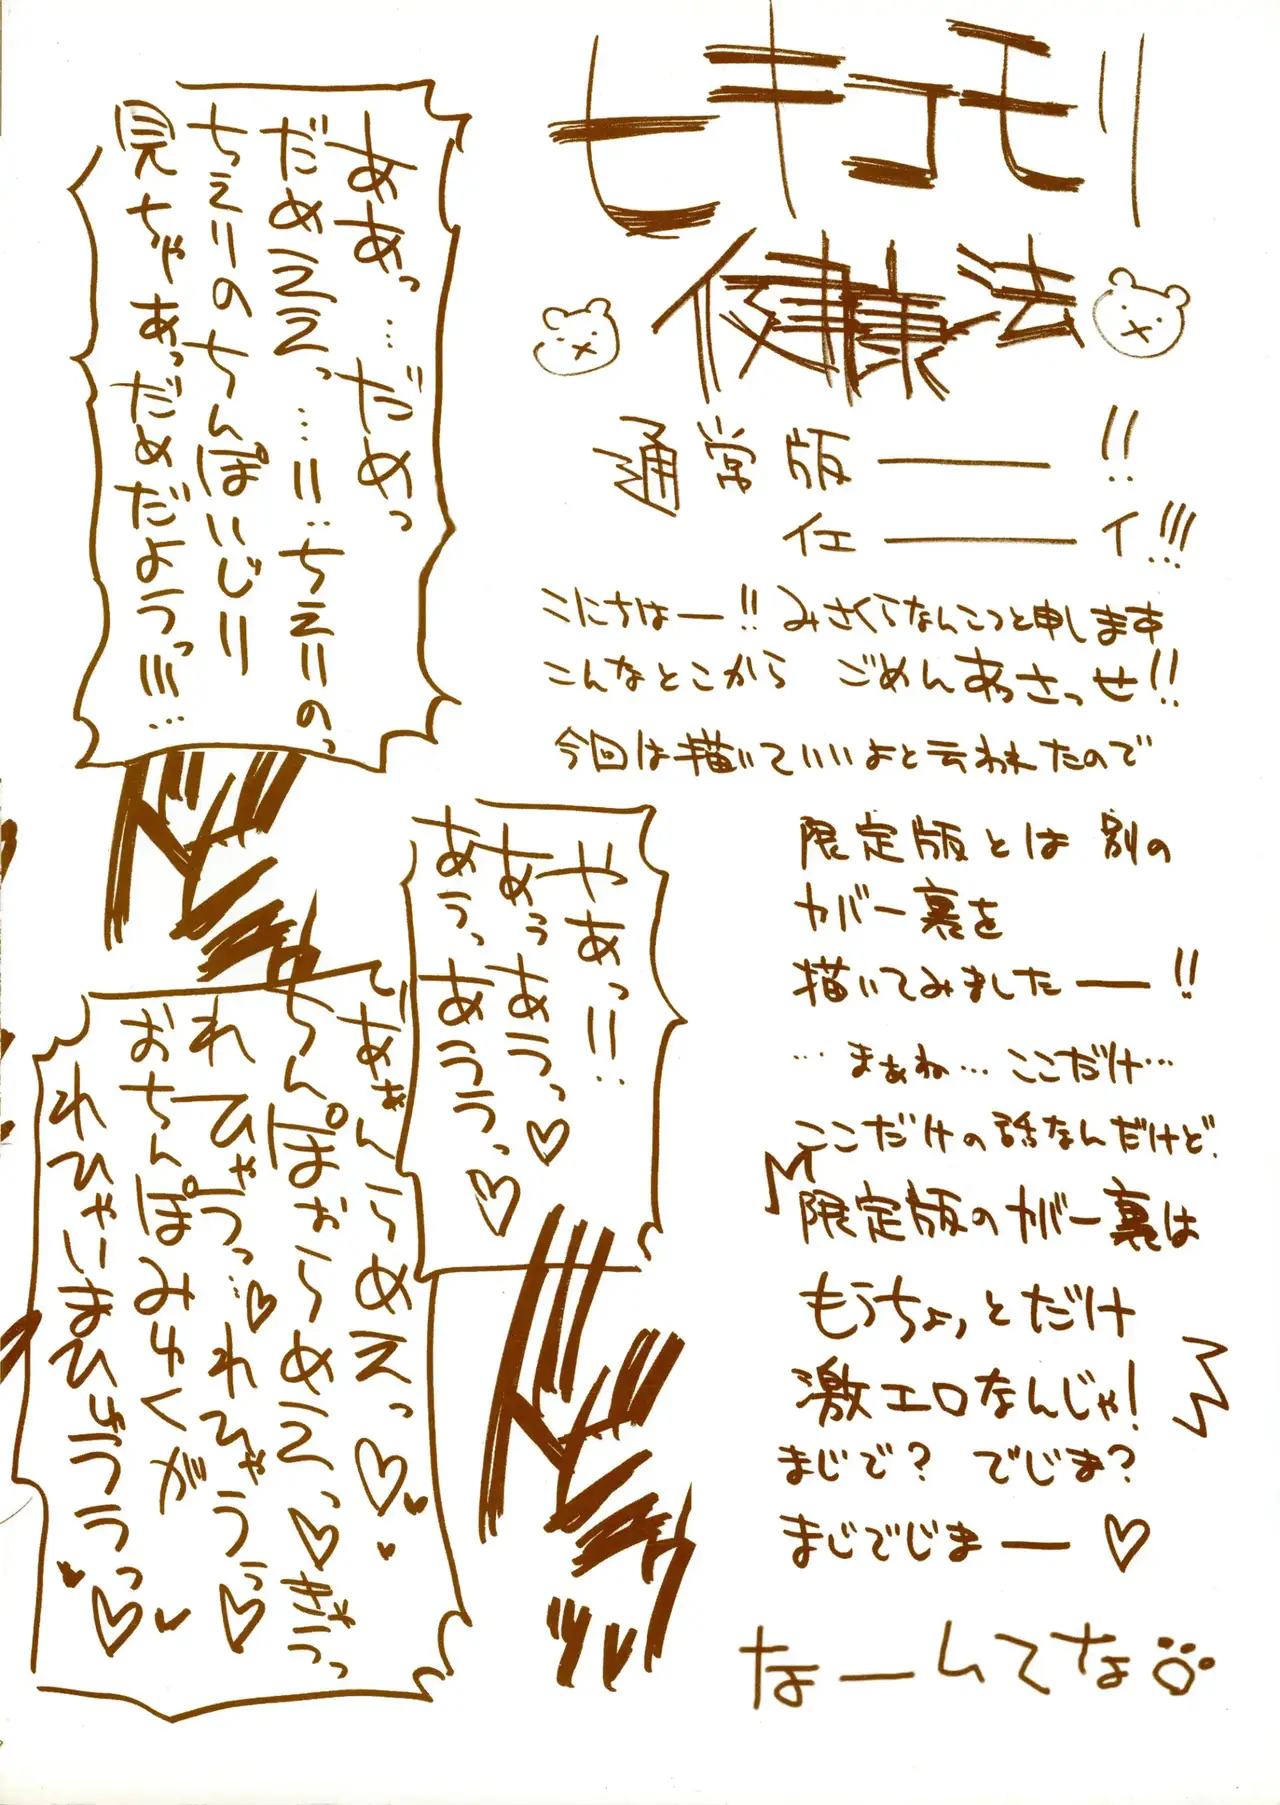 ヒキコモリ
健康法
通常版――!!
イエ――イ!!!
こにちはー!! みさくらなんこつと申します
こんなとこから ごめんあっさっせ!!
今回は描いていいよと云われたので
限定版とは別の
カバー裏を
描いてみましたー!!
…まぁね…ここだけ…
ここだけの話なんだけど、
限定版のカバー裏は
もうちょっとだけ
激エロなんじゃ!
まじで? でじま?
まじでじまー♡
なーんてな
ああっ…だめっ
だめえええっ…!!…ちえりのっ
ちえりのちんぽいじり
見ちゃあっだめだようっ!!!…
ドビュ
やあっ!!…
あぅっあうっ♡
あぅっあううっ♡
あ゛ぁんらめえっ♡
ちんぽぉらめえっ♡きゃうっ
れひゃうっ…♡れひゃうぅ♡
おちんぽみゆくが
れひゃいまひゅううっ♡